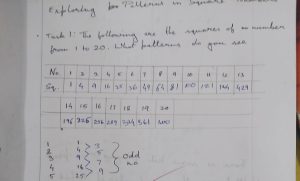 Exploring Patterns in Square Numbers
Task 1: The following are the squares of a number
from 1 to 20. What patterns do you see
No. 1 2 3 4 5 6 7 8 9 10 11 12 13
Sq. 1 4 9 16 25 36 49 64 81 100 121 144
14 15 16 17 18 19 20
196 225 256 289 324 361 400
1 1
2 4 3
3 9 5
4 16 7 odd
5 25 9 no